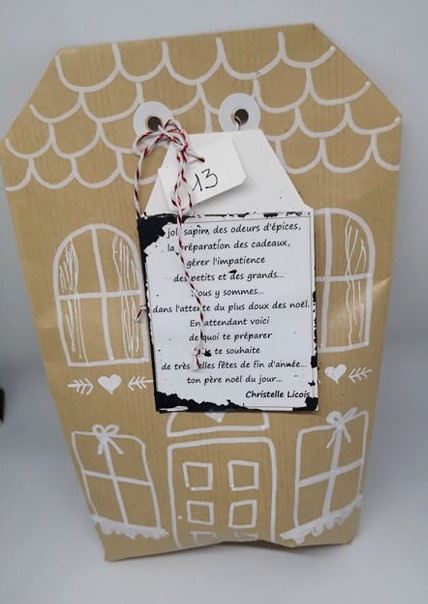 13
joli sapin, des odeurs d'épices,
la préparation des cadeaux,
gérer l'impatience
des petits et des grands...
Nous y sommes...
dans l'attente du plus doux des noël.
En attendant voici
de quoi te préparer
te souhaite
de très belles fêtes de fin d'année...
ton père noël du jour...
Christelle Licois